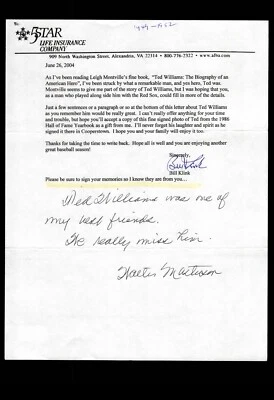 5STAR
LIFE INSURANCE
COMPANY
909 North Washington Street, Alexandria, VA 22314 • 800-776-2322 • www.afba.com
June 26, 2004
As I've been reading Leigh Montville's fine book, "Ted Williams: The Biography of an
American Hero", I've been struck by what a remarkable man, and yes hero, Ted was
Montville seems to give me part of the story of Ted Williams, but I was hoping that you,
as a man who played along side him with the Red Sox, could fill in more of the details.
Just a few sentences or a paragraph or so at the bottom of this letter about Ted Williams
as you remember him would be really great. I can't really offer anything for your time
and trouble, but I hope you'll accept a copy of this fine signed photo of Ted from the 1986
Hall of Fame Yearbook as a gift from me. I'll never forget his laughter and spirit as he
signed it there in Cooperstown. I hope you and your family will enjoy it too.
Thanks for taking the time to write back. Hope all is well and you are enjoying another
great baseball season!
Sincerely,
Bill Klink
Bill Klink
Please be sure to sign your memories so I know they are from you…
Ted Williams was one of
my best friends.
We really miss him.
Walter Masterson